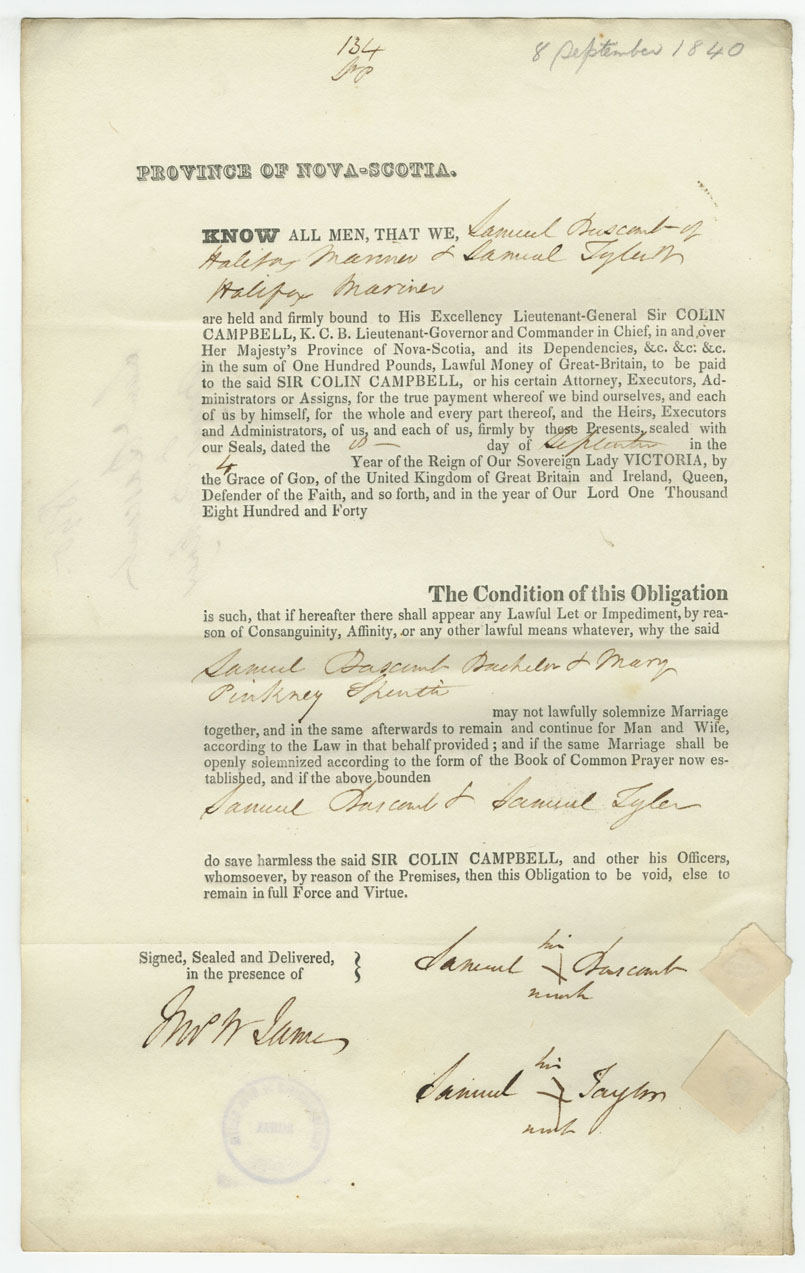 134
8 September 1840
PROVINCE OF NOVA-SCOTIA.
KNOW ALL MEN, THAT WE, Samuel Buscomb of
Halifax Mariner & Samuel Tyler
Halifax Mariner
are held and firmly bound to His Excellency Lieutenant-General Sir COLIN
CAMPBELL, K. C. B. Lieutenant-Governor and Commander in Chief, in and over
Her Majesty's Province of Nova-Scotia, and its Dependencies, &c. &c: &c.
in the sum of One Hundred Pounds, Lawful Money of Great-Britain, to be paid
to the said SIR COLIN CAMPBELL, or his certain Attorney, Executors, Ad-
ministrators or Assigns, for the true payment whereof we bind ourselves, and each
of us by himself, for the whole and every part thereof, and the Heirs, Executors
and Administrators, of us, and each of us, firmly by these Presents, sealed with
our Seals, dated the 8 — day of September in the
4 Year of the Reign of Our Sovereign Lady VICTORIA, by
the Grace of GOD, of the United Kingdom of Great Britain and Ireland, Queen,
Defender of the Faith, and so forth, and in the year of Our Lord One Thousand
Eight Hundred and Forty
The Condition of this Obligation
is such, that if hereafter there shall appear any Lawful Let or Impediment, by rea-
son of Consanguinity, Affinity, or any other lawful means whatever, why the said
Samuel Buscomb Bachelor & Mary
Pinkney Spinster
may not lawfully solemnize Marriage
together, and in the same afterwards to remain and continue for Man and Wife,
according to the Law in that behalf provided ; and if the same Marriage shall be
openly solemnized according to the form of the Book of Common Prayer now es-
tablished, and if the above bounden
Samuel Buscomb & Samuel Tyler
do save harmless the said SIR COLIN CAMPBELL, and other his Officers,
whomsoever, by reason of the Premises, then this Obligation to be void, else to
remain in full Force and Virtue.
Signed, Sealed and Delivered,
in the presence of
his
Samuel Buscomb
mark
W James
his
Samuel Taylor
mark